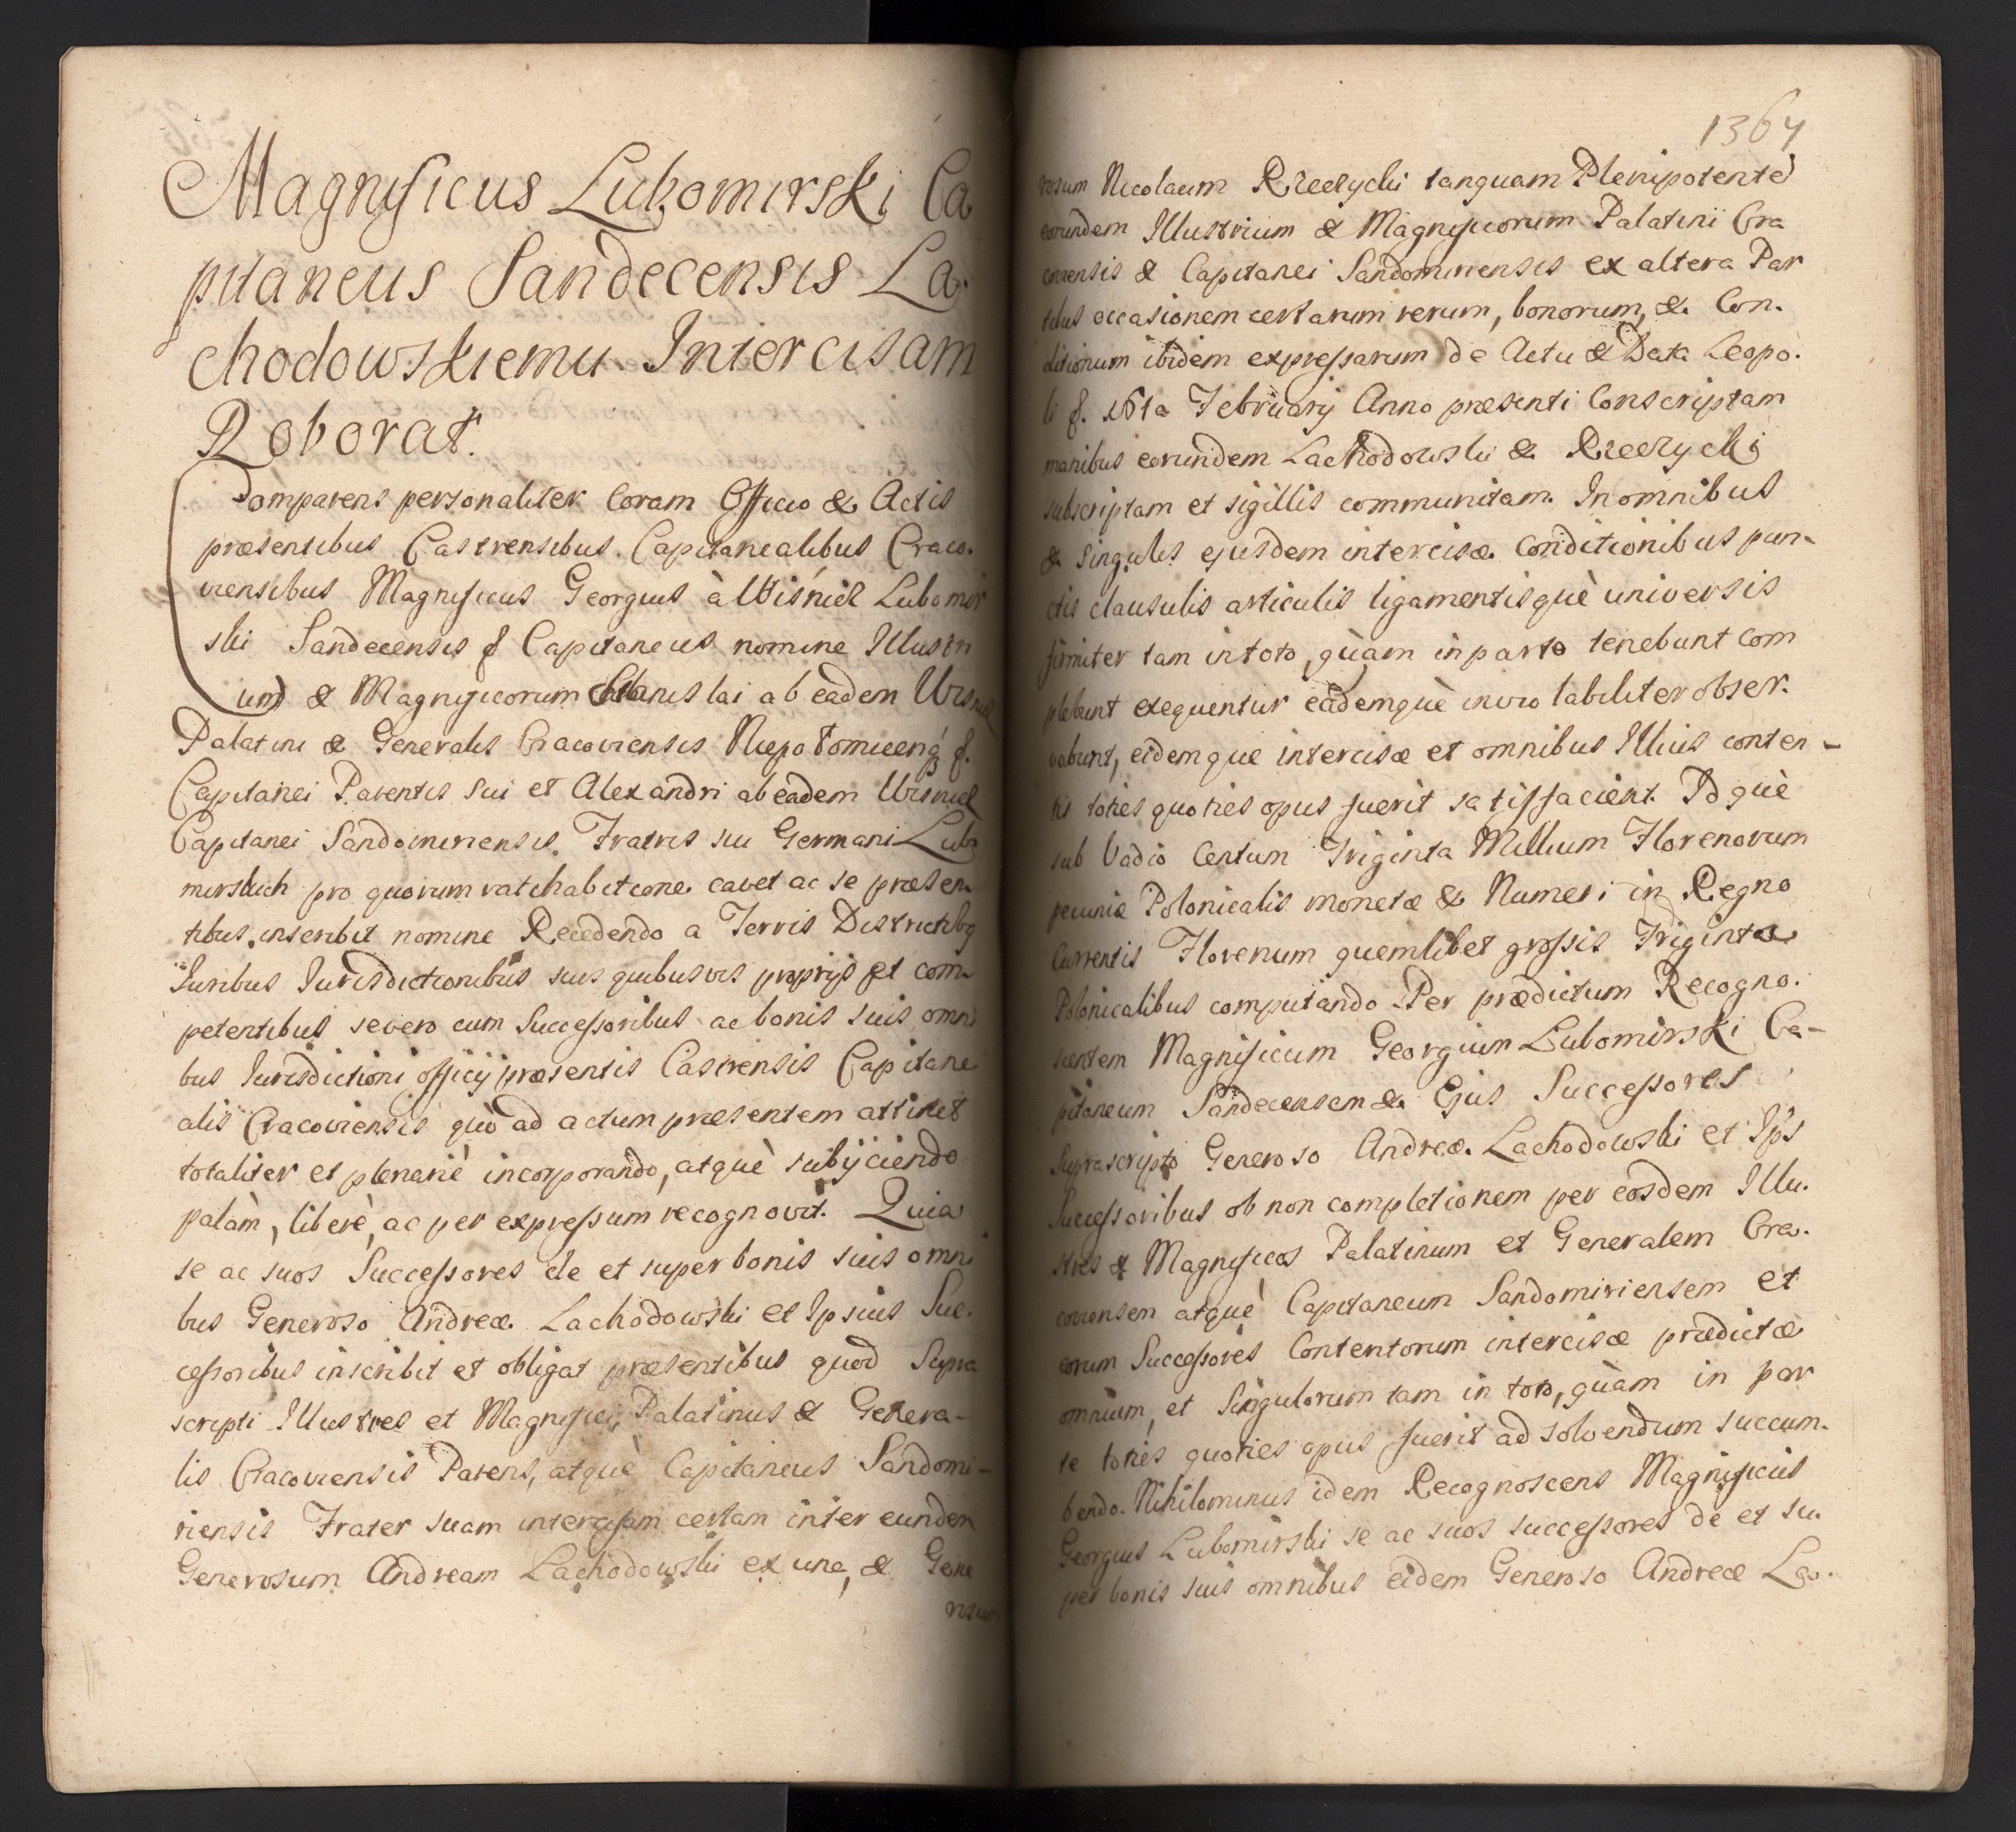 Magnificus Lubomirski Ca
pitaneus Sandecensis La.
chodowskiemu Intercisam
Roborat.
Comparens personaliter Coram Officio & Actis
præsentibus Castrensibus Capitanealibus Craco.
viensibus Magnificus Georgius à Wisnicz Lubomir
ski Sandecensis Capitaneus nomine Illustri
um & Magnificorum Stanislai ab eadem Wisnicz
Palatini & Generalis Cracoviensis Niepołomicens
Capitanei Parentis sui et Alexandri ab eadem Wisnicz
Capitanei Sandomiriensis Fratris sui Germani Lubo
mirskich pro quorum ratihabitione cavet ac se præsen
tibus inscribit nomine Recedendo a Terris Districtibus
Iuribus Iurisdictionibus suis quibusvis proprijs et com
petentibus se vero cum Successoribus ac bonis suis omni
bus Iurisdictioni officij præsentis Castrensis Capitane
alis Cracoviensis quò ad actum præsentem attinet
totaliter et plenariè incorporando, atquè subijciendo
palàm, liberè, ac per expressum recognovit. Quia
se ac suos Successores de et super bonis suis omni
bus Generoso Andreæ Lachodowski et Ipsius Suc.
cessoribus inscribit et obligat præsentibus quod Supra
scripti Illustres et Magnifici, Palatinus & Genera-
lis Cracoviensis Parens, atquè Capitaneus Sandomi-
riensis Frater suam intercisam certam inter eundem
Generosum Andream Lachodowski ex una, & Gene
rosum
1367
rosum Nicolaum Rzeczycki tanquam Plenipotentem
eorundem Illustrium & Magnificorum Palatini Cra
coviensis & Capitanei Sandomiriensis ex altera Par
tibus occasionem certarum rerum, bonorum, & Con.
ditionum ibidem expressarum de Actu & Data Leopo.
li Februarij Anno præsenti Conscriptam
manibus eorundem Lachodowski & Rzeczycki
subscriptam et sigillis communitam. In omnibus
& Singulis ejusdem intercisæ Conditionibus pun-
ctis clausulis articulis ligamentisquè universis
firmiter tam in toto, quàm in parte tenebunt com
plebunt exequentur eademquè inviolabiliter obser.
vabunt, eidemque intercisæ et omnibus Illius conten-
tis toties quoties opus fuerit satisfacient. Idquè
sub Vadio Centum Triginta Millium Florenorum
pecuniæ Polonicalis monetæ & Numeri in Regno
Currentis Florenum quemlibet grossis Triginta
Polonicalibus computando Per prædictum Recogno.
scentem Magnificum Georgium Lubomirski Ca-
pitaneum Sandecensem & Ejus Successores
Suprascripto Generoso Andreæ Lachodowski et Ips
Successoribus ob non completionem per eosdem Illu.
stres & Magnificos Palatinum et Generalem Cra.
coviensem atquè Capitaneum Sandomiriensem et
eorum Successores Contentorum intercisæ prædictæ
omnium, et Singulorum tam in toto, quàm in par
te toties quoties opus fuerit ad solvendum succum.
bendo. Nihilominus idem Recognoscens Magnificus
Georgius Lubomirski se ac suos successores de et su.
per bonis suis omnibus eidem Generoso Andreæ La.